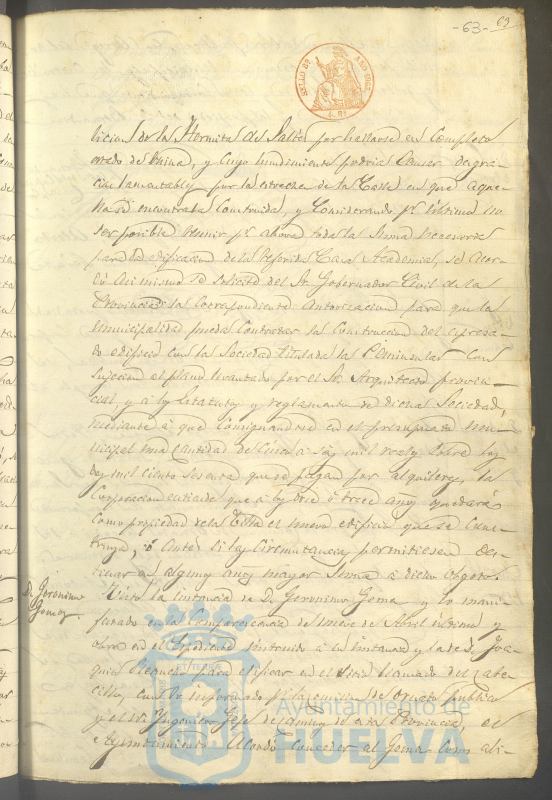 -63- 63
SELLO 4º AÑO 1862
licion de la Hermita del Salto por hallarse en completo
estado de ruina, y cuyo hundimiento podria causar desgra-
cias lamentables por la estrechez de la Calle en que aque-
lla se encontraba construida, y Considerando pr. último no
ser posible reunir pr. ahora toda la suma necesaria
para la edificacion de la referida Casa Academia, se acor-
dó asi mismo se solicite del Sr. Gobernador Civil de la
Provincia la correspondiente autorizacion para que la
municipalidad pueda contratar la construccion del espresa-
do edificio con la Sociedad titulada la Peninsular con
sujecion al plano levantado por el Sr. Arquitecto provin-
cial, y á los Estatutos y reglamento de dicha Sociedad,
mediante á que consignandose en el presupuesto mu-
nicipal una cantidad de cinco á seis mil reales sobre los
dos mil ciento sesenta que se pagan por alquileres, la
Corporacion entiende que á los doce ó trece años quedará
como propiedad de la Villa el nuevo edificio que se cons-
truya, ó antes si las circunstancias permitiesen des-
tinar en algunos años mayor suma á dicho objeto.
D. Geronimo
Gomez.
Vista la instancia de D. Geronimo Goma y lo mani-
festado en la comparecencia de nueve de Abril último y
obra en el Espediente instruido á su instancia y la de D. Joa-
quin para edificar en el sitio llamado del
con lo informado pr. la comision de ornato publico
y el Sr. Yngeniero Gefe de de esta Provincia, el
Ayuntamiento Acordó conceder al Goma como ali-
Ayuntamiento de
HUELVA